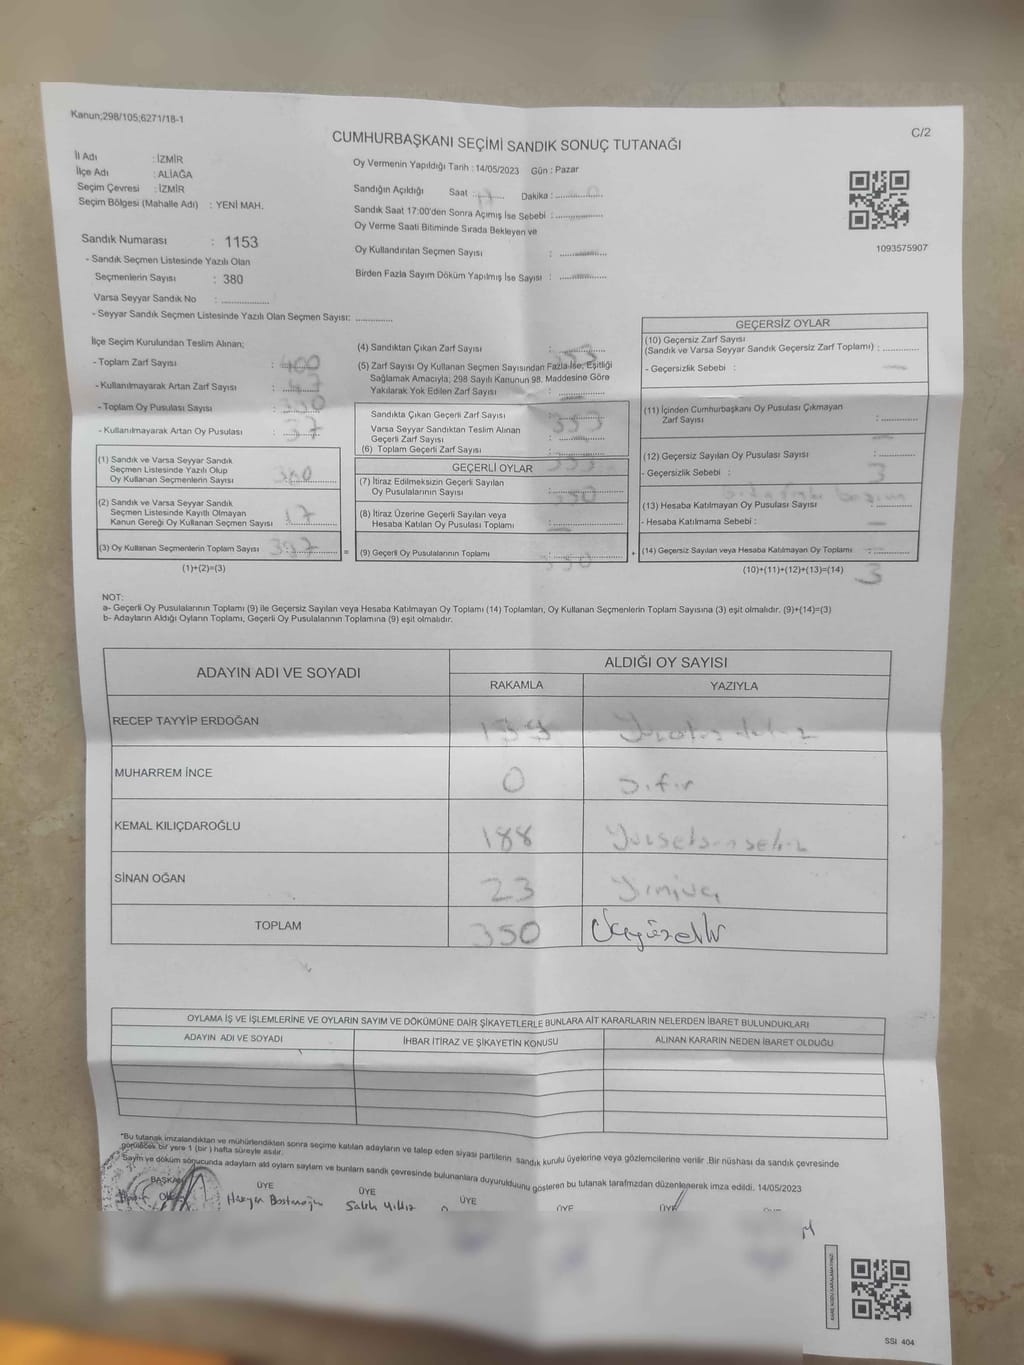 Kanun;298/105;6271/18-1
C/2
CUMHURBAŞKANI SEÇİMİ SANDIK SONUÇ TUTANAĞI
İl Adı : İZMİR
İlçe Adı : ALİAĞA
Seçim Çevresi : İZMİR
Seçim Bölgesi (Mahalle Adı) : YENİ MAH.
Sandık Numarası : 1153
- Sandık Seçmen Listesinde Yazılı Olan
Seçmenlerin Sayısı : 380
Varsa Seyyar Sandık No : ............
- Seyyar Sandık Seçmen Listesinde Yazılı Olan Seçmen Sayısı: ............
Oy Vermenin Yapıldığı Tarih : 14/05/2023 Gün : Pazar
Sandığın Açıldığı Saat : 17 Dakika :
Sandık Saat 17:00'den Sonra Açımış İse Sebebi : ............
Oy Verme Saati Bitiminde Sırada Bekleyen ve
Oy Kullandırılan Seçmen Sayısı : ............
Birden Fazla Sayım Döküm Yapılmış İse Sayısı : ............
1093575907
İlçe Seçim Kurulundan Teslim Alınan;
- Toplam Zarf Sayısı : 400
- Kullanılmayarak Artan Zarf Sayısı :
- Toplam Oy Pusulası Sayısı :
- Kullanılmayarak Artan Oy Pusulası : 37
(1) Sandık ve Varsa Seyyar Sandık
Seçmen Listesinde Yazılı Olup
Oy Kullanan Seçmenlerin Sayısı
(2) Sandık ve Varsa Seyyar Sandık
Seçmen Listesinde Kayıtlı Olmayan
Kanun Gereği Oy Kullanan Seçmen Sayısı : 17
(3) Oy Kullanan Seçmenlerin Toplam Sayısı :
(1)+(2)=(3)
=
(4) Sandıktan Çıkan Zarf Sayısı : 353
(5) Zarf Sayısı Oy Kullanan Seçmen Sayısından Fazla İse, Eşitliği
Sağlamak Amacıyla; 298 Sayılı Kanunun 98. Maddesine Göre
Yakılarak Yok Edilen Zarf Sayısı : ............
Sandıkta Çıkan Geçerli Zarf Sayısı : 353
Varsa Seyyar Sandıktan Teslim Alınan
Geçerli Zarf Sayısı : ............
(6) Toplam Geçerli Zarf Sayısı : 353
GEÇERLİ OYLAR
(7) İtiraz Edilmeksizin Geçerli Sayılan
Oy Pusulalarının Sayısı : 350
(8) İtiraz Üzerine Geçerli Sayılan veya
Hesaba Katılan Oy Pusulası Toplamı : ............
(9) Geçerli Oy Pusulalarının Toplamı : 350
+
GEÇERSİZ OYLAR
(10) Geçersiz Zarf Sayısı
(Sandık ve Varsa Seyyar Sandık Geçersiz Zarf Toplamı) : ............
- Geçersizlik Sebebi :
(11) İçinden Cumhurbaşkanı Oy Pusulası Çıkmayan
Zarf Sayısı : ............
(12) Geçersiz Sayılan Oy Pusulası Sayısı : ............
- Geçersizlik Sebebi : 3
(13) Hesaba Katılmayan Oy Pusulası Sayısı : ............
- Hesaba Katılmama Sebebi :
(14) Geçersiz Sayılan veya Hesaba Katılmayan Oy Toplamı : ............
(10)+(11)+(12)+(13)=(14) 3
NOT:
a- Geçerli Oy Pusulalarının Toplamı (9) ile Geçersiz Sayılan veya Hesaba Katılmayan Oy Toplamı (14) Toplamları, Oy Kullanan Seçmenlerin Toplam Sayısına (3) eşit olmalıdır. (9)+(14)=(3)
b- Adayların Aldığı Oyların Toplamı, Geçerli Oy Pusulalarının Toplamına (9) eşit olmalıdır.
ADAYIN ADI VE SOYADI
ALDIĞI OY SAYISI
RAKAMLA YAZIYLA
RECEP TAYYİP ERDOĞAN 139
MUHARREM İNCE 0 Sıfır
KEMAL KILIÇDAROĞLU 188 Yüzseksensekiz
SİNAN OĞAN 23 Yirmiüç
TOPLAM 350 Üçyüzelli
OYLAMA İŞ VE İŞLEMLERİNE VE OYLARIN SAYIM VE DÖKÜMÜNE DAİR ŞİKAYETLERLE BUNLARA AİT KARARLARIN NELERDEN İBARET BULUNDUKLARI
ADAYIN ADI VE SOYADI İHBAR İTİRAZ VE ŞİKAYETİN KONUSU ALINAN KARARIN NEDEN İBARET OLDUĞU
"Bu tutanak imzalandıktan ve mühürlendikten sonra seçime katılan adayların ve talep eden siyasi partilerin sandık kurulu üyelerine veya gözlemcilerine verilir .Bir nüshası da sandık çevresinde
görülecek bir yere 1 (bir ) hafta süreyle asılır.
Sayım ve döküm sonucunda adayların ald oyların sayıların ve bunların sandık çevresinde bulunanlara duyurulduunu gösteren bu tutanak tarafımızdan düzenlenerek imza edildi. 14/05/2023
BAŞKAN ÜYE ÜYE ÜYE ÜYE ÜYE
Salih Yıldız
SSI 404